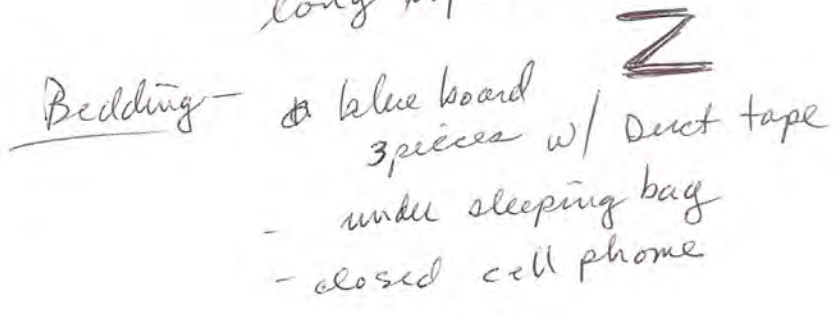 long
Z
Bedding - blue board
3 pieces w/ Duct tape
- under sleeping bag
- closed cell phome